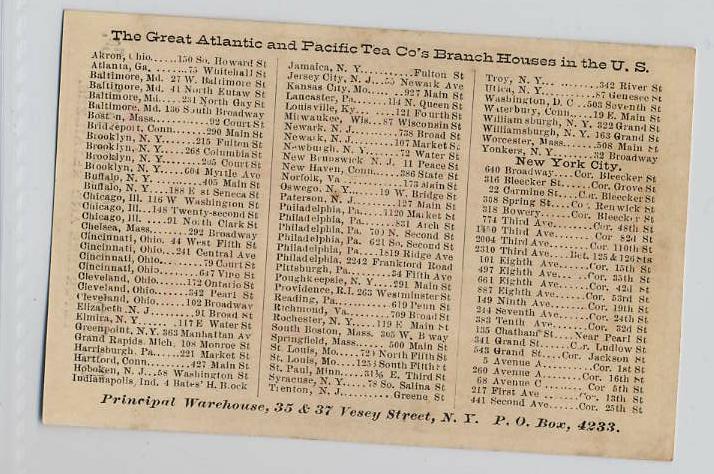 The Great Atlantic and Pacific Tea Co's Branch Houses in the U. S.
Akron, Ohio......150 So. Howard St
Atlanta, Ga..........75 Whitehall St
Baltimore, Md. 27 W. Baltimore St
Baltimore, Md. 41 North Eutaw St
Baltimore, Md....231 North Gay St
Baltimore, Md. 136 South Broadway
Boston, Mass..........92 Court St
Bridgeport, Conn..........290 Main St
Brooklyn, N.Y..........215 Fulton St
Brooklyn, N.Y......268 Columbia St
Brooklyn, N.Y..........205 Court St
Brooklyn, N.Y......604 Myrtle Ave
Buffalo, N. Y..........405 Main St
Buffalo, N.Y......188 East Seneca St
Chicago, Ill. 116 W Washington St
Chicago, Ill...148 Twenty-second St
Chicago, Ill......91 North Clark St
Chelsea, Mass..........292 Broadway
Cincinnati, Ohio. 44 West Fifth St
Cincinnati, Ohio...241 Central Ave
Cincinnati, Ohio..........79 Court St
Cincinnati, Ohio..........647 Vine St
Cleveland, Ohio......172 Ontario St
Cleveland, Ohio..........342 Pearl St
Cleveland, Ohio......102 Broadway
Elizabeth N. J..........91 Broad St
Elmira, N. Y..........117 E Water St
Greenpoint, N.Y. 363 Manhattan Av
Grand Rapids. Mich. 108 Monroe St
Harrisburg, Pa......221 Market St
Hartford, Conn..........427 Main St
Hoboken, N. J...58 Washington St
Indianapolis, Ind. 4 Bates' H. Block
Jamaica, N. Y..........Fulton St
Jersey City, N. J...55 Newark Ave
Kansas City, Mo..........927 Main St
Lancaster, Pa......114 N. Queen St
Louisville, Ky......121 Fourth St
Milwaukee, Wis...87 Wisconsin St
Newark, N. J..........738 Broad St
Newark, N. J......107 Market St
Newburgh, N. Y......72 Water St
New Brunswick N. J. 11 Peace St
New Haven, Conn......386 State St
Norfolk, Va..........173 Main St
Oswego, N. Y......19 W. Bridge St
Paterson, N. J..........127 Main St
Philadelphia, Pa......1120 Market St
Philadelphia, Pa..........831 Arch St
Philadelphia, Pa. 709 N. Second St
Philadelphia, Pa. 621 So. Second St
Philadelphia, Pa....1819 Ridge Ave
Philadelphia, 2242 Frankford Road
Pittsburg, Pa..........34 Fifth Ave
Poughkeepsie, N. Y......291 Main St
Providence, R.I. 263 Westminster St
Reading, Pa..........619 Penn St
Richmond, Va..........709 Broad St
Rochester, N. Y......119 E Main St
South Boston, Mass. 365 W. B way
Springfield, Mass......500 Main St
St. Louis, Mo......North Fifth St
St. Louis, Mo......South Fifth St
St. Paul, Minn......E. Third St
Syracuse, N. Y......78 So. Salina St
Trenton, N. J..........Greene St
Troy, N. Y..........342 River St
Utica, N. Y..........87 Genesee St
Washington, D. C..503 Seventh St
Waterbury, Conn......19 E. Main St
Williamsburgh, N. Y. 322 Grand St
Williamsburgh, N. Y. 163 Grand St
Worcester, Mass..........508 Main St
Yonkers, N. Y..........32 Broadway
New York City.
640 Broadway......Cor. Bleecker St
316 Bleecker St......Cor. Grove St
22 Carmine St...Cor. Bleecker St
308 Spring St......Cor Renwick St
318 Bowery......Cor. Bleecker St
774 Third Ave..........Cor. 48th St
Third Ave..........Cor 82d St
2004 Third Ave......Cor. 110th St
2310 Third Ave...Bet. 125 & 126 Sts
101 Eighth Ave......Cor. 15th St
497 Eighth Ave......Cor. 35th St
661 Eighth Ave......Cor. 42d St
887 Eighth Ave......Cor. 53rd St
149 Ninth Ave......Cor. 19th St
244 Seventh Ave......Cor. 24th St
383 Tenth Ave..........Cor. 32d St
135 Chatham St......Near Pearl St
341 Grand St......Cor. Ludlow St
543 Grand St......Cor. Jackson St
5 Avenue A..........Cor. 1st St
260 Avenue A......Cor. 16th St
68 Avenue C..........Cor 5th St
217 First Ave......Cor. 13th St
441 Second Ave......Cor. 25th St
Principal Warehouse, 35 & 37 Vesey Street, N. Y. P. O. Box, 4233.